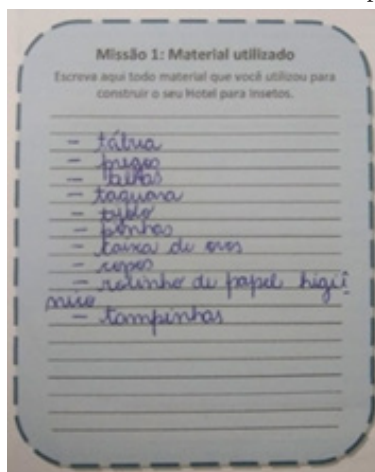 Missão 1: Material utilizado
Escreva aqui todo material que você utilizou para
construir o seu Hotel para Insetos.
- tábua
- pregos
- telhas
- taquara
- tijolo
- pinhas
- caixa de ovos
- copos
- rolinho de papel higiê
nico
- tampinhas